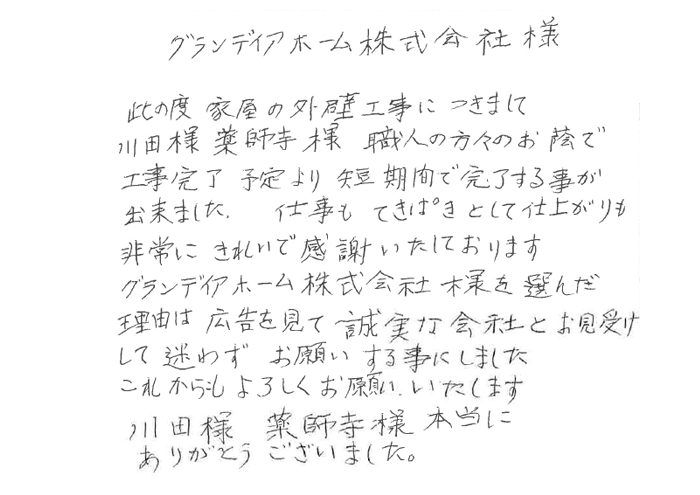 グランディアホーム株式会社様
此の度 家屋の外壁工事につきまして
川田様 薬師寺様 職人の方々のお蔭で
工事完了 予定より 短期間で完了する事が
出来ました. 仕事も てきぱきとして仕上がりも
非常に きれいで感謝いたしております
グランディアホーム株式会社様を選んだ
理由は 広告を見て 誠実な会社とお見受け
して 迷わず お願いする事にしました
これからも よろしくお願いいたします
川田様 薬師寺様 本当に
ありがとうございました。